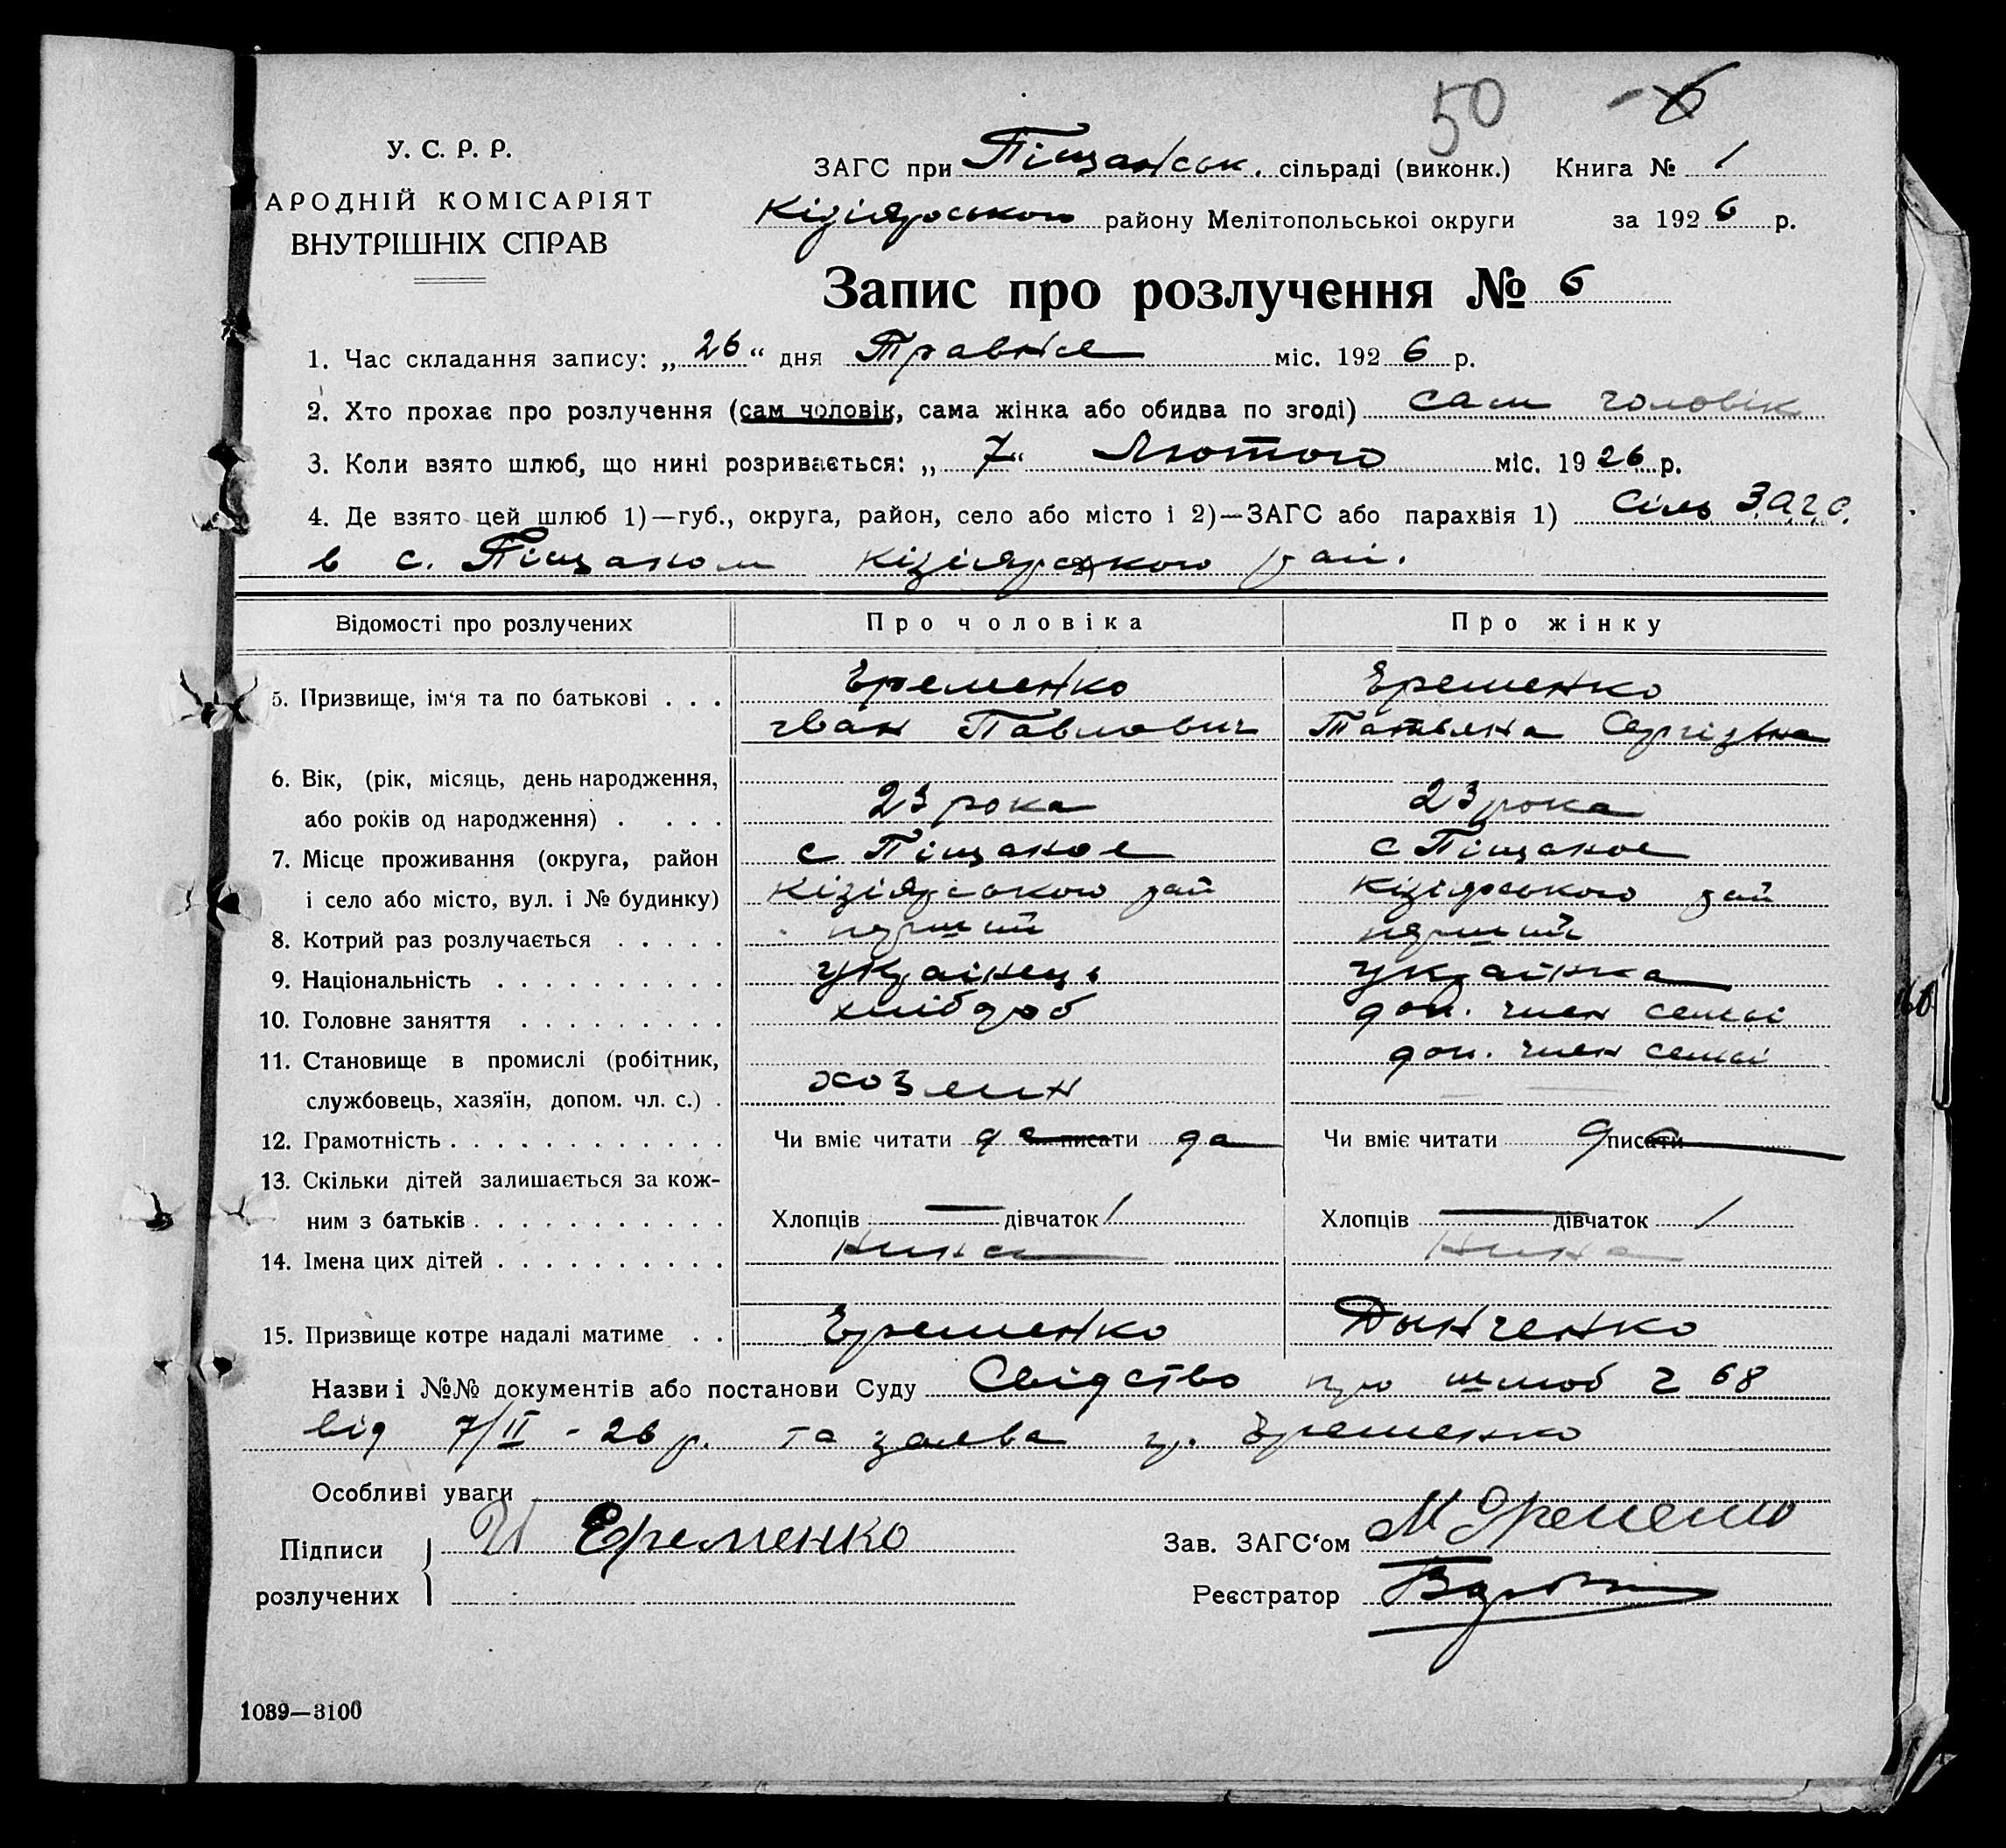 50 6
У. С. Р. Р.
АРОДНІЙ КОМІСАРІЯТ
ВНУТРІШНІХ СПРАВ
ЗАГС при Піщанськ. сільраді (виконк.) Книга № 1
Кізіярського району Мелітопольської округи за 1926 р.
Запис про розлучення № 6
1. Час складання запису: „26“ дня Травня міс. 1926 р.
2. Хто прохає про розлучення (сам чоловік, сама жінка або обидва по згоді) сам чоловік
3. Коли взято шлюб, що нині розривається: „7“ Лютого міс. 1926 р.
4. Де взято цей шлюб 1)—губ., округа, район, село або місто і 2)—ЗАГС або парахвія 1) Сіль З.А.Г.С.
в с. Піщаном Кізіярського рай.
Відомості про розлучених Про чоловіка Про жінку
5. Призвище, ім‘я та по батькові . . . Єременко Єременко
Іван Павлович Татьяна Сергіевна
6. Вік, (рік, місяць, день народження,
або років од народження) . . . . 23 рока 23 рока
7. Місце проживання (округа, район с Піщаное с Піщаное
і село або місто, вул. і № будинку) Кізіярського рай Кізіярського рай
8. Котрий раз розлучається . . . . . перший перший
9. Національність . . . . . . . . . . українець українка
10. Головне заняття . . . . . . . . . хлібороб доп. член семьі
11. Становище в промислі (робітник, доп. член семьі
службовець, хазяїн, допом. чл. с.) . хозяин
12. Грамотність . . . . . . . . . . . . Чи вміє читати да писати да Чи вміє читати писати
13. Скільки дітей залишається за кож-
ним з батьків . . . . . . . . . . . Хлопців — дівчаток 1 Хлопців — дівчаток 1
14. Імена цих дітей . . . . . . . . . . Нина Нина
15. Призвище котре надалі матиме . . Єременко Дынченко
Назви і №№ документів або постанови Суду Свідство про шлюб ч 68
від 7/II - 26 р. та заява гр. Єременко
Особливі уваги
Підписи И Еременко Зав. ЗАГС‘ом
розлучених Реєстратор
1089—3100